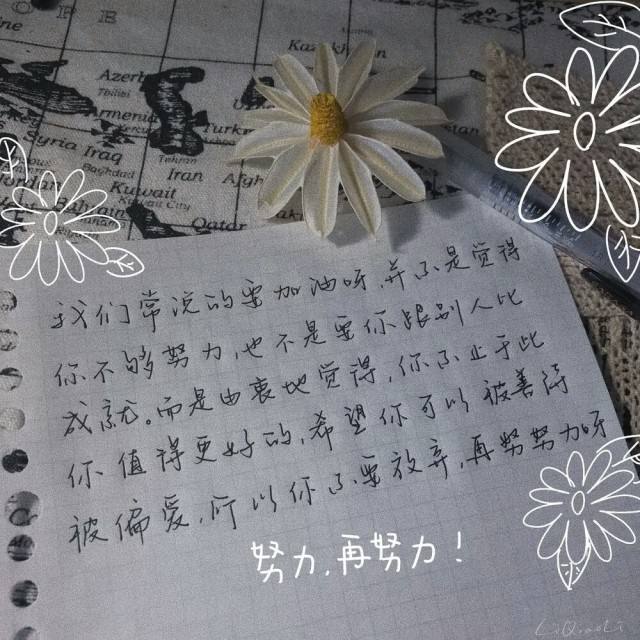 Kazakhstan
Azerb
Tbilisi
Armenia
Turk
Syria Iraq
Tehran
Baghdad
Iran
Afgh
Kuwait
Kuwait City
Bahra
Qatar
我们常说的要加油呀，并不是觉得
你不够努力，也不是要你跟别人比
成就。而是由衷地觉得，你不止于此
你值得更好的，希望你可以被善待
被偏爱，所以你不要放弃，再努努力呀
努力，再努力！
LiQiaoLi